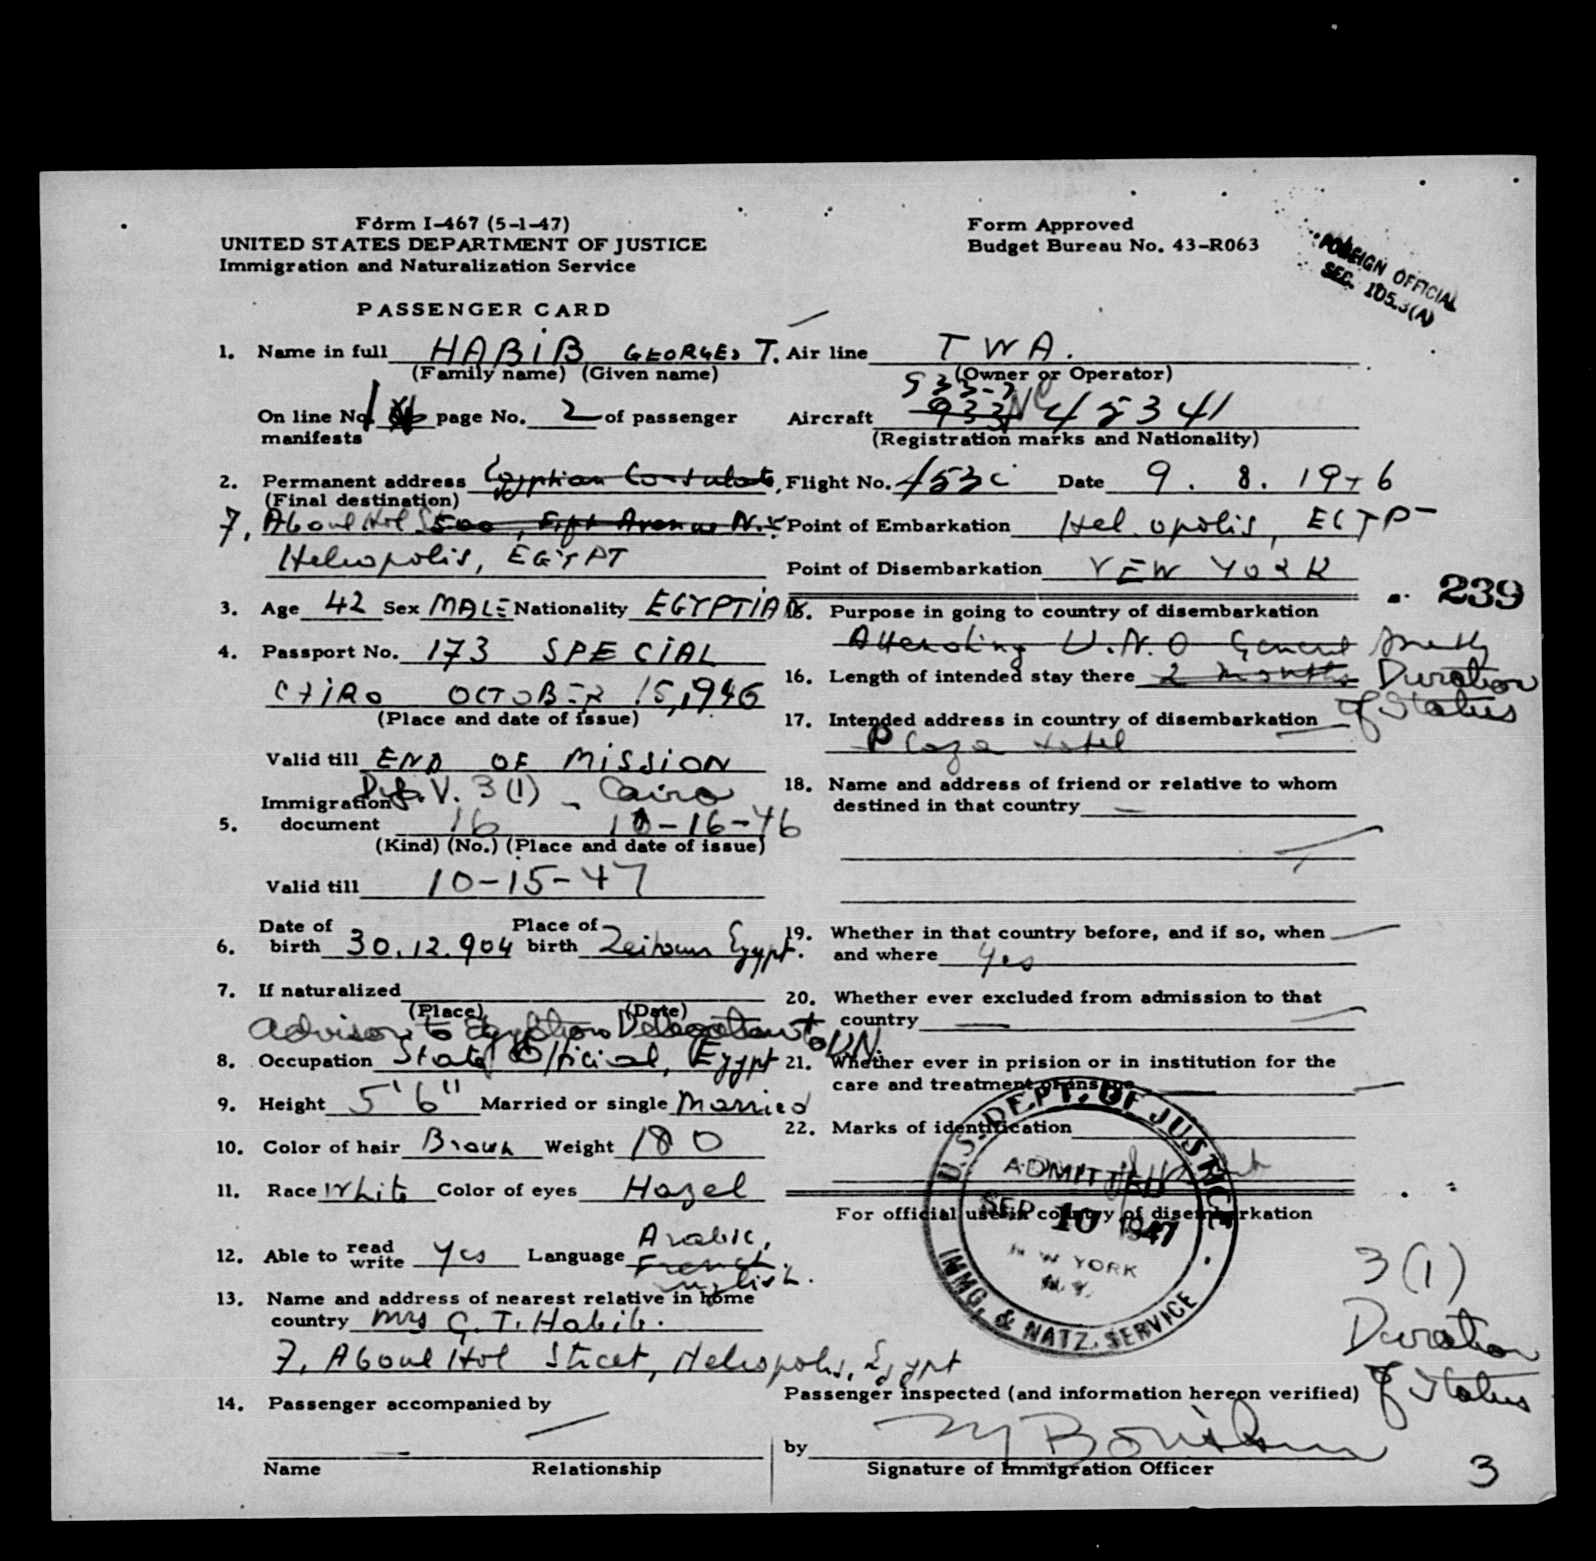 Form I-467 (5-1-47)
UNITED STATES DEPARTMENT OF JUSTICE
Immigration and Naturalization Service
Form Approved
Budget Bureau No. 43-R063
FOREIGN OFFICIAL
SEC. 105.3(A)
PASSENGER CARD
1. Name in full HABIB GEORGES T.
(Family name) (Given name)
On line No. 1 page No. 2 of passenger
manifests
2. Permanent address Egyptian Consulate,
(Final destination)
7, Aboul Hol St 500, Fift Avenue N.Y
Heliopolis, EGYPT
3. Age 42 Sex MALE Nationality EGYPTIAN
4. Passport No. 173 SPECIAL
CAIRO OCTOBER 15, 1946
(Place and date of issue)
Valid till END OF MISSION
Dip. V. 3(1) - Cairo
Immigration
5. document 16 10-16-46
(Kind) (No.) (Place and date of issue)
Valid till 10-15-47
6. Date of birth 30.12.904 Place of birth Zeitoun Egypt.
7. If naturalized
(Place) (Date)
Advisor to Egyptian Delegation to UN.
8. Occupation State Official, Egypt
9. Height 5'6" Married or single Married
10. Color of hair Brown Weight 180
11. Race White Color of eyes Hazel
12. Able to read write Yes Language Arabic,
French,
English.
13. Name and address of nearest relative in home
country Mrs G. T. Habib.
7, Aboul Hol Street, Heliopolis, Egypt
14. Passenger accompanied by
Name Relationship
Air line TWA.
(Owner or Operator)
Aircraft 933 NC 45341
(Registration marks and Nationality)
Flight No. 453C Date 9. 8. 1946
Point of Embarkation Heliopolis, EGYPT
Point of Disembarkation NEW YORK
239
15. Purpose in going to country of disembarkation
Attending U.N.O General Assembly
16. Length of intended stay there 2 months Duration
of Status
17. Intended address in country of disembarkation
Plaza Hotel
18. Name and address of friend or relative to whom
destined in that country
19. Whether in that country before, and if so, when
and where Yes
20. Whether ever excluded from admission to that
country
21. Whether ever in prision or in institution for the
care and treatment of insane
22. Marks of identification
For official use in country of disembarkation
U.S. DEPT. OF JUSTICE
ADMITTED
SEP 10 1947
NEW YORK
N.Y.
IMMG. & NATZ. SERVICE
3(1)
Duration
of Status
Passenger inspected (and information hereon verified)
by
Signature of Immigration Officer
3